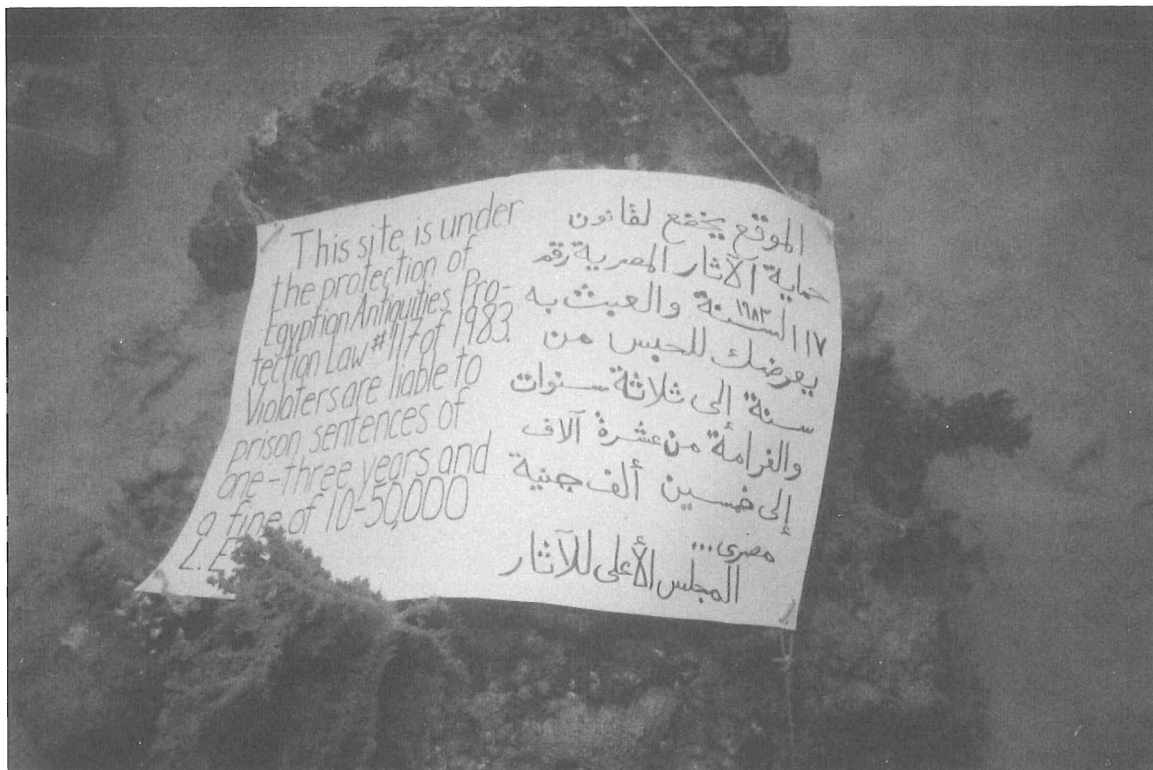 This site is under
the protection of
Egyptian Antiquities Pro-
tection Law #117 of 1983.
Violaters are liable to
prison sentences of
one-three years and
a fine of 10-50,000
الموقع يخضع لقانون
حماية الآثار المصرية رقم
١١٧ لسنة ١٩٨٣ والعبث به
يعرضك للحبس من
سنة إلى ثلاثة سنوات
والغرامة من عشرة آلاف
إلى خمسين ألف جنية
مصرى...
المجلس الأعلى للآثار